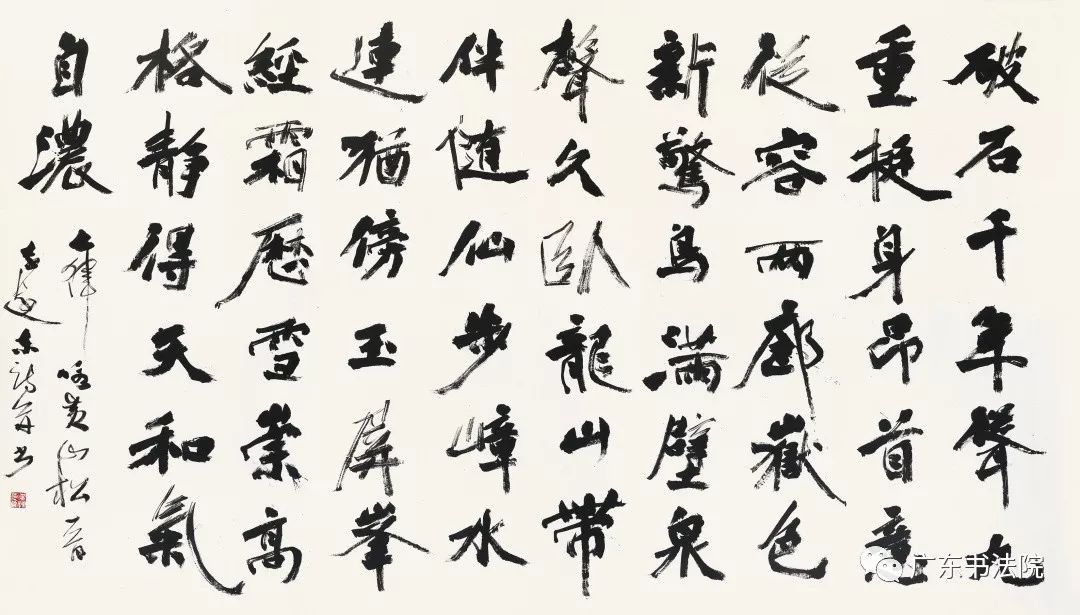 破石千年聳九
重挺身昂首意
從容兩廊嶽色
新驚鳥滿壁泉
聲久臥龍山帶
伴随仙步嶂水
連猶傍玉屏峯
經霜歷雪崇高
格靜得天和氣
自濃
七律 咏黄山松一首
詩并书
广东书法院